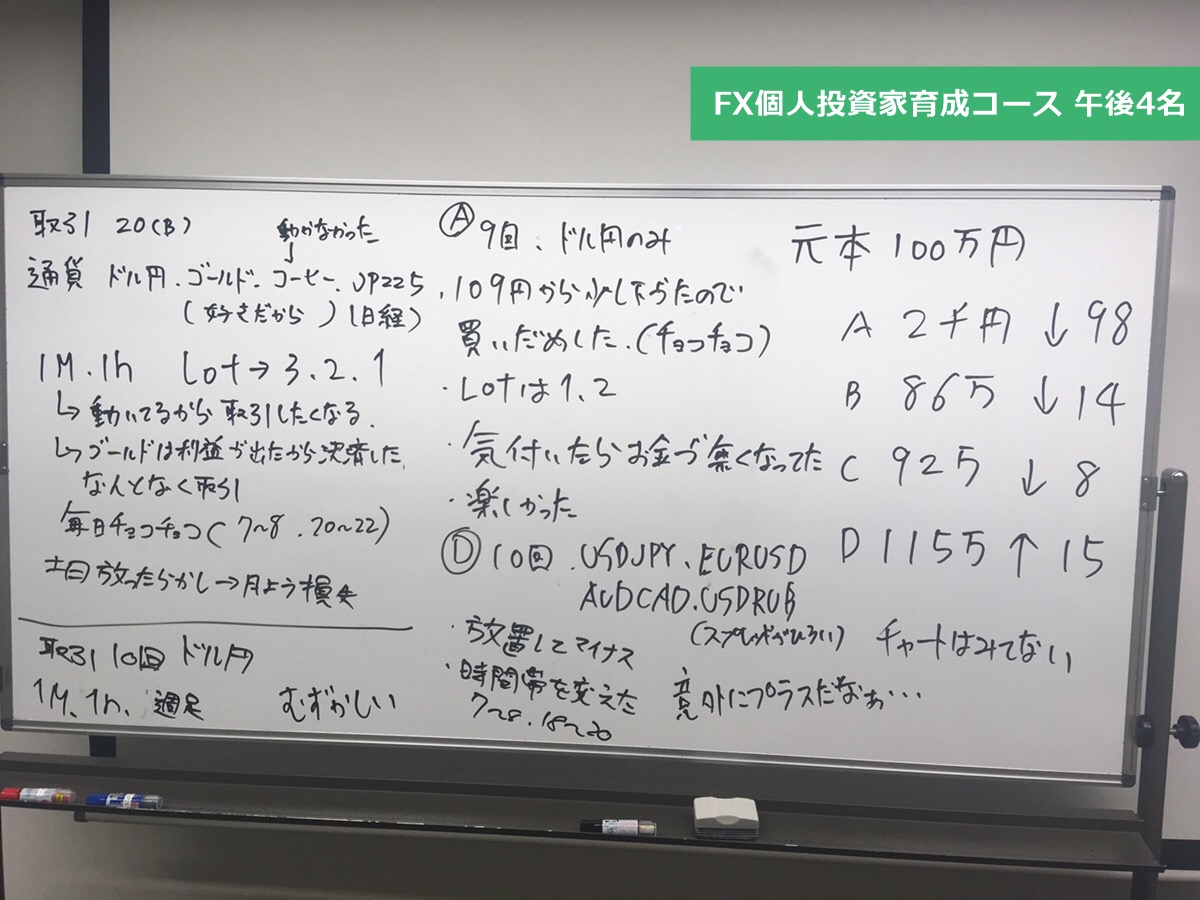 FX個人投資家育成コース 午後4名
取引 20(B)
動かなかった
↓
通貨 ドル円、ゴールド、コーヒー、JP225
(好きだから) (日経)
1M.1h Lot→3.2.1
↳動いてるから取引したくなる。
↳ゴールドは利益が出たから決済した。
なんとなく取引
毎日チョコチョコ(7~8.20~22)
土日放ったらかし→月よう損失
取引10回 ドル円
1M.1h. 週足 むずかしい
Ⓐ 9回、ドル円のみ
・109円から少し下がったので
買いだめした.(チョコチョコ)
・Lotは1.2
・気付いたらお金が無くなってた
・楽しかった
Ⓓ 10回.USDJPY.EURUSD
AUDCAD.USDRUB
(スプレッドがひろい)
・放置してマイナス
・時間帯を変えた
7~8.18~20
元本 100万円
A 2千円 ↓98
B 86万 ↓14
C 92万 ↓8
D 115万 ↑15
チャートはみてない
意外にプラスだなぁ…